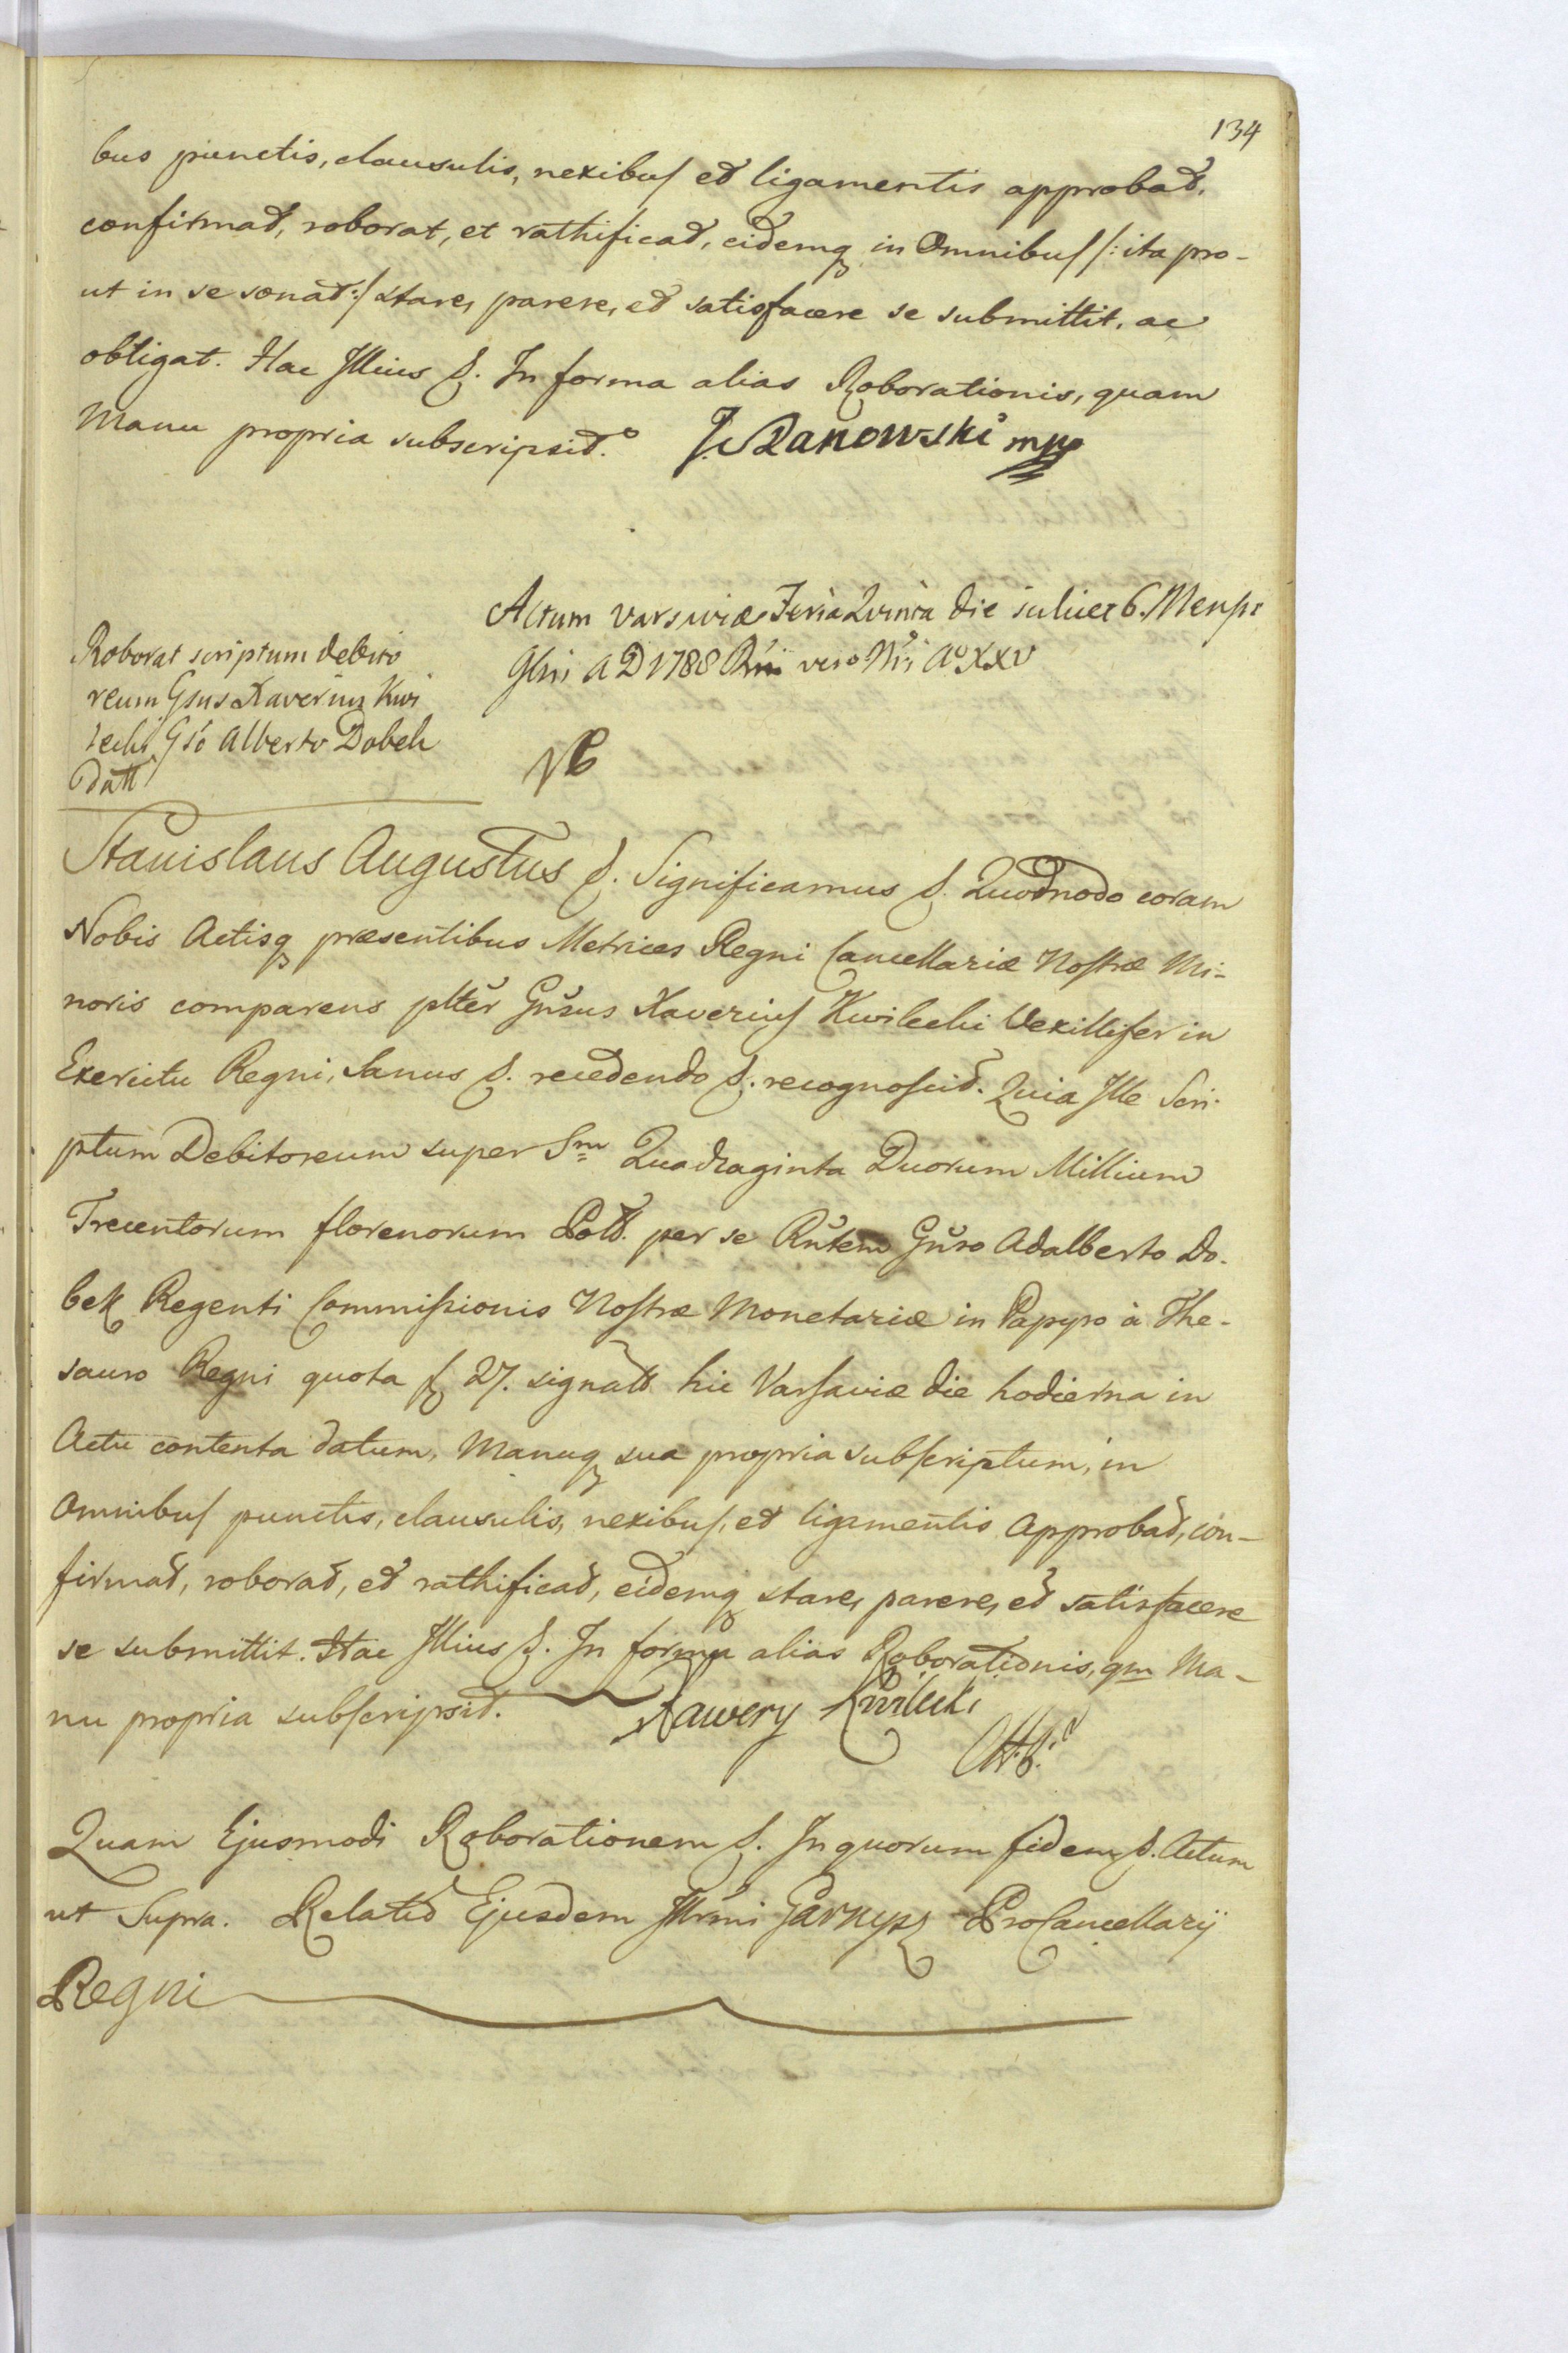 134
bus punctis, clausulis, nexibus et ligamentis approbat,
confirmat, roborat, et rathificat, eidemq in Omnibus /: ita pro-
ut in se sonat :/ stare, parere, et satisfacere se submittit, ac
obligat. Hac Illius &. In forma alias Roborationis, quam
Manu propria subscripsit.
Actum Varsaviæ Feria Quinta die scilicet 6. Mensis
Gbris A D 1788 Rni vero Nri Ao XXV
Roborat scriptum debito
reum Gsus Xaverius Kwi
lecki Gso Alberto Dobek
datt
Stanislaus Augustus &. Significamus &. Quodmodo coram
Nobis Actisq præsentibus Metrices Regni Cancellariæ Nostræ Mi-
noris comparens plter Gnsus Xaverius Kwilecki Vexillifer in
Exercitu Regni, Sanus &. recedendo &. recognoscit. Quia Ille Scri-
ptum Debitoreum super Sm Quadraginta Duorum Millium
Trecentorum florenorum Poll. per se Rntem Gnso Adalberto Do-
bek Regenti Commissionis Nostræ Monetariæ in Papyro à The-
sauro Regni quota f 27. signatt hic Varsaviæ die hodierna in
Actu contenta datum, Manuq sua propria subscriptum, in
Omnibus punctis, clausulis, nexibus, et ligamentis approbat, con-
firmat, roborat, et rathificat, eidemq stare, parere, et satisfacere
se submittit. Hac Illius &. In forma alias Roborationis, qm Ma-
nu propria subscripsit. Xawery Kwilecki
Quam Ejusmodi Roborationem &. In quorum fidem &. Actum
ut Supra. Relatio Ejusdem Illrmi Garnysz ProCancellarij
Regni